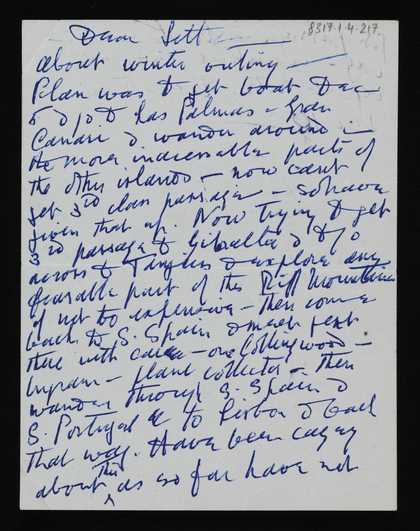 8317.1.4.217
Dear Sett
about winter outing —
Plan was to get boat Dec
to go to Las Palmas – Gran
Canare & wander around in
the more inaccessable parts of
the other islands – now can't
get 3rd class passage – so have
given that up. Now trying to get
3rd passage to Gibralter & to go
across to Tangiers & explore any
feasable part of the Riff Mountains
if not to expensive – then come
back to S. Spain & meet gent
there with – one Collingwood –
Ingram – plant collector – then
wander through S. Spain &
S. Portugal to Lisbon & back
that way. Have been cagey
about this as so far have not